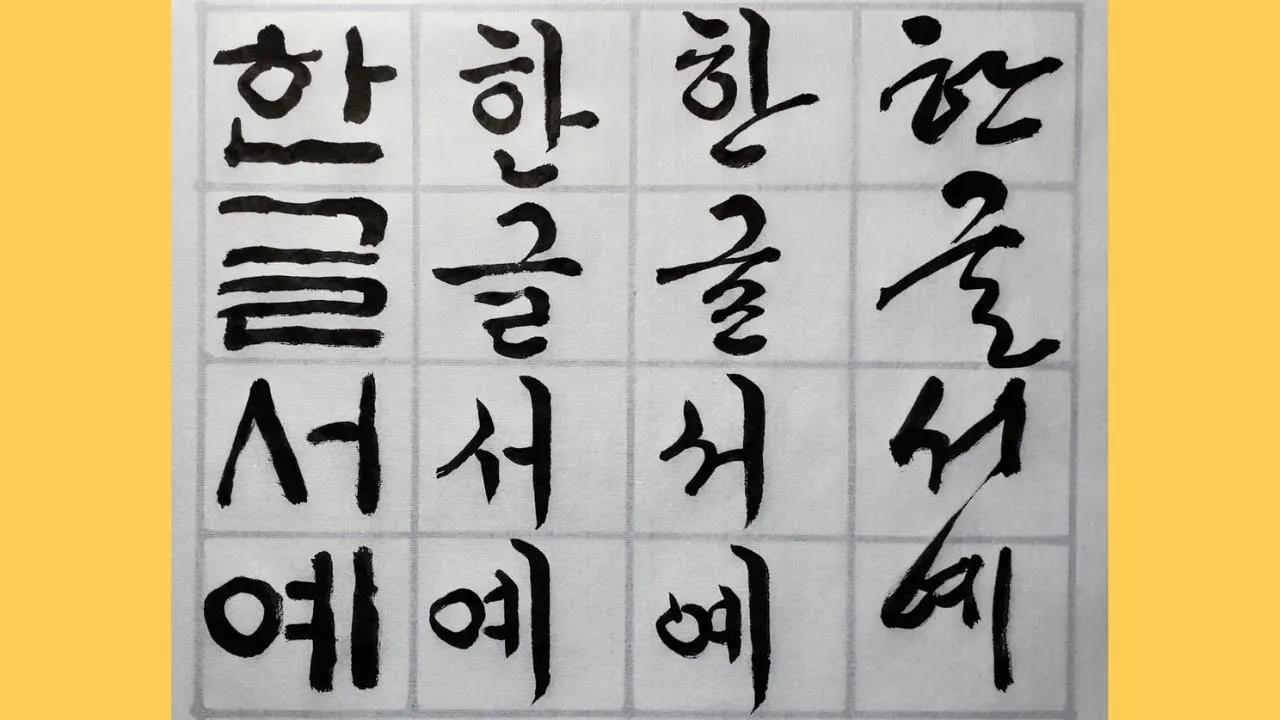 한 한 한 한
글 글 글 글
서 서 서 서
예 예 예 예